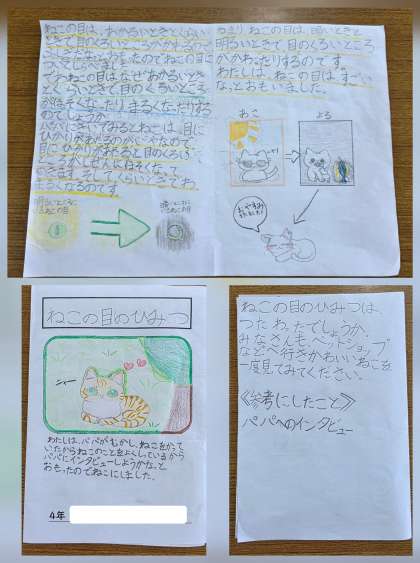 ねこの目は、あかるいときとくらい
ときで目のくろいところがかわるので
ついてしらべました。
ではねこの目はなぜあかるいとき
とくらいときで目のくろいところ
がほそくなったり、まるくなったりする
のでしょうか。
目にひかりが
まるくなるのです。
明るいところに
いるねこの目
ねこの目は、明るいときと
明るいときで目のくろいところ
がかわったりするのです。
わたしは、ねこの目は、すごい
な、とおもいました。
よる
おやすみ
ねこの目のひみつ
シャー
わたしは、パパがむかし、ねこをかって
いたからねこのことをよくしっているから
パパにインタビューしようかな、と
おもったのでねこにしました。
4年
ねこの目のひみつは、
つたわったでしょうか。
みなさんも、ペットショップ
などへ行きかわいいねこを
一度見てみてください。
《参考にしたこと》
パパへのインタビュー